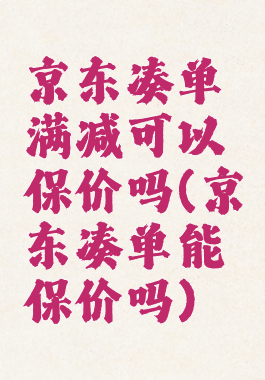 京东凑单
满减可以
保价吗(京
东凑单能
保价吗)